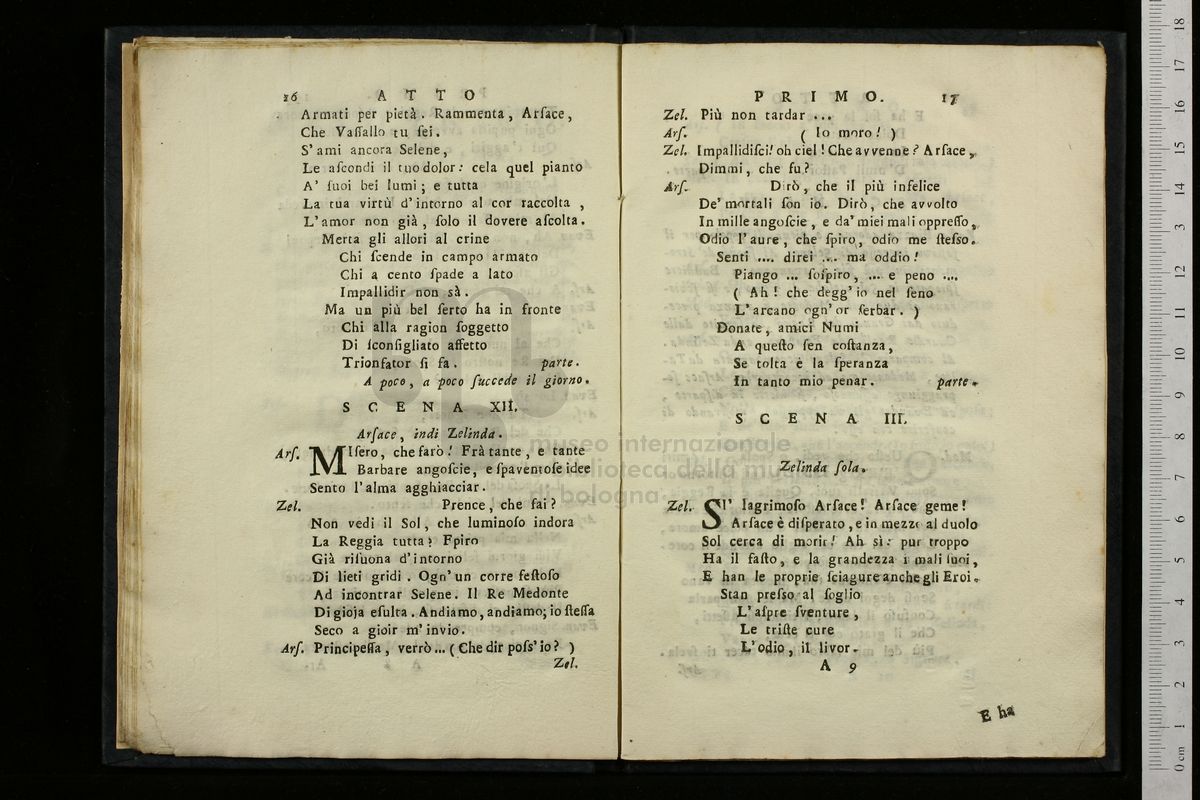 16 A T T O
Armati per pietà. Rammenta, Arſace,
Che Vaſſallo tu ſei.
S'ami ancora Selene,
Le aſcondi il tuo dolor: cela quel pianto
A' ſuoi bei lumi; e tutta
La tua virtù d'intorno al cor raccolta,
L'amor non già, ſolo il dovere aſcolta.
Merta gli allori al crine
Chi ſcende in campo armato
Chi a cento ſpade a lato
Impallidir non sà.
Ma un più bel ſerto ha in fronte
Chi alla ragion ſoggetto
Di ſconſigliato affetto
Trionfator ſi fa. parte.
A poco, a poco ſuccede il giorno.
S C E N A XII.
Arſace, indi Zelinda.
Arſ. MIſero, che farò! Frà tante, e tante
Barbare angoſcie, e ſpaventoſe idee
Sento l'alma agghiacciar.
Zel. Prence, che fai?
Non vedi il Sol, che luminoſo indora
La Reggia tutta? Epiro
Già riſuona d'intorno
Di lieti gridi. Ogn'un corre feſtoſo
Ad incontrar Selene. Il Re Medonte
Di gioja eſulta. Andiamo, andiamo; io ſteſſa
Seco a gioir m'invio.
Arſ. Principeſſa, verrò... (Che dir poſs'io?)
Zel.
P R I M O. 17
Zel. Più non tardar ...
Arſ. (Io moro!)
Zel. Impallidiſci! oh ciel! Che avvenne? Arſace,
Dimmi, che fu?
Arſ. Dirò, che il più infelice
De' mortali ſon io. Dirò, che avvolto
In mille angoſcie, e da' miei mali oppreſſo,
Odio l'aure, che ſpiro, odio me ſteſso.
Senti .... direi .... ma oddio!
Piango ... ſoſpiro, ... e peno ....
(Ah! che degg'io nel ſeno
L'arcano ogn'or ſerbar.)
Donate, amici Numi
A queſto ſen coſtanza,
Se tolta è la ſperanza
In tanto mio penar. parte.
S C E N A III.
Zelinda ſola.
Zel. SI' lagrimoſo Arſace! Arſace geme!
Arſace è diſperato, e in mezzo al duolo
Sol cerca di morir! Ah sì: pur troppo
Ha il faſto, e la grandezza i mali ſuoi,
E han le proprie ſciagure anche gli Eroi.
Stan preſso al ſoglio
L'aſpre ſventure,
Le triſte cure
L'odio, il livor.
A 9
E ha
museo internazionale
e biblioteca della musica
di bologna
0 cm 1 2 3 4 5 6 7 8 9 10 11 12 13 14 15 16 17 18